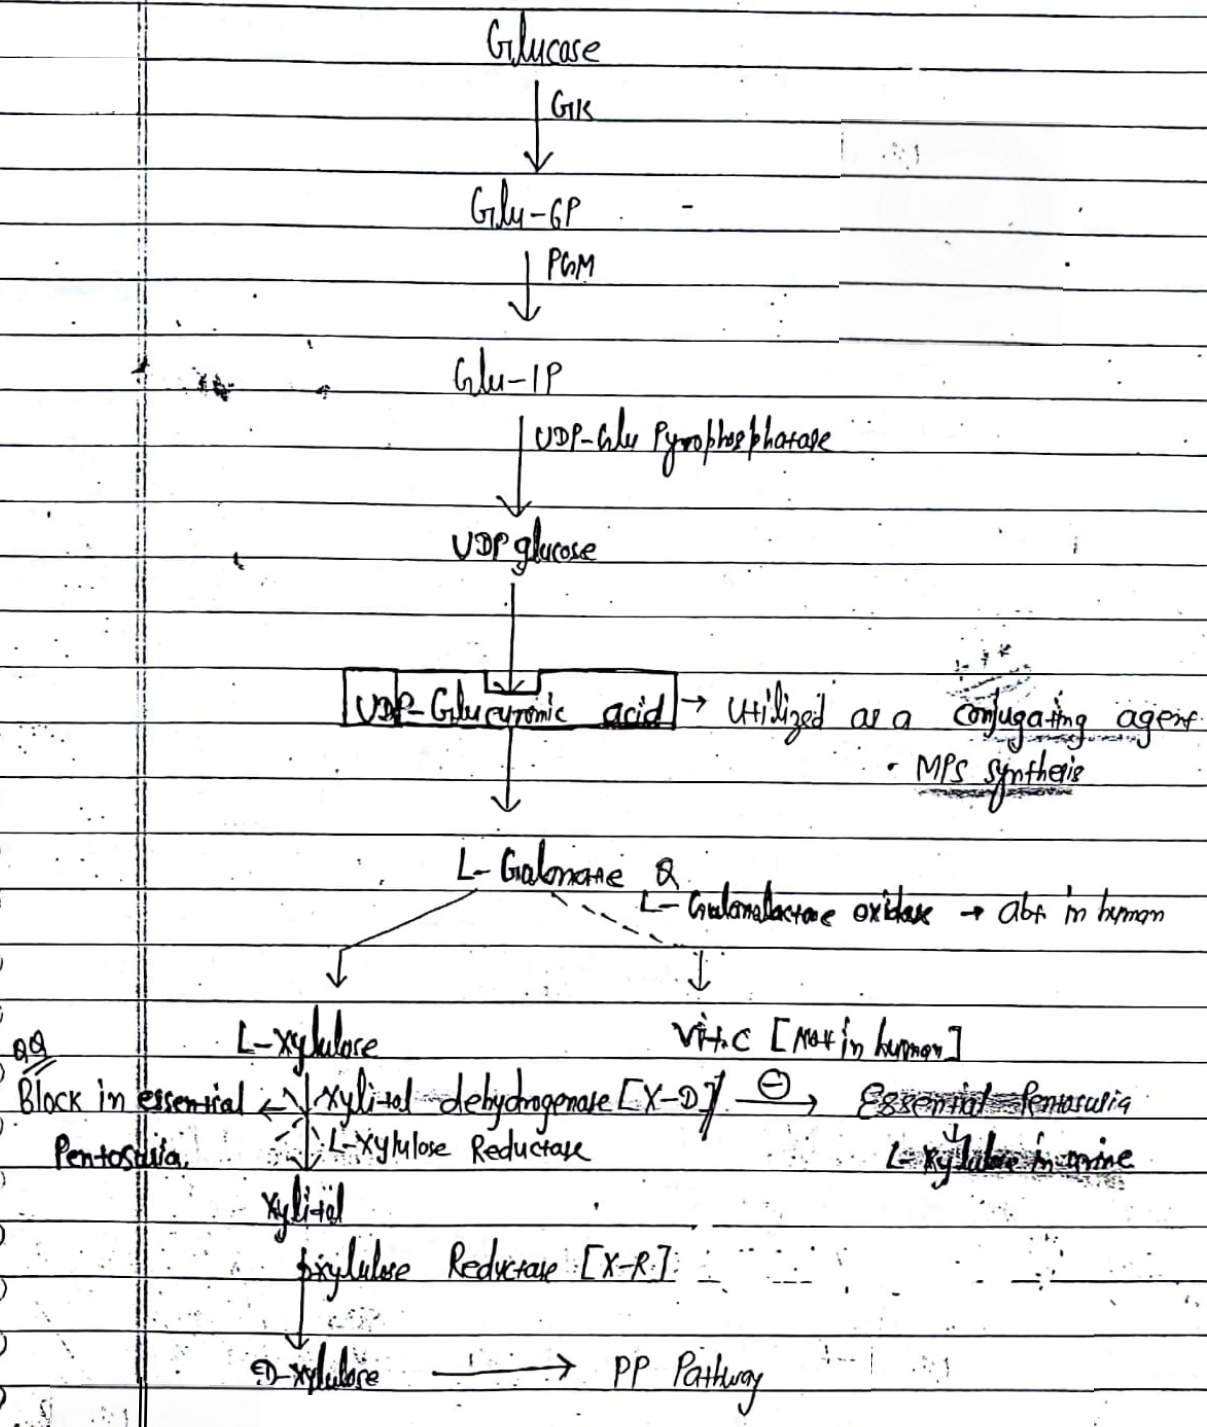 Glucose
GK
Glu-6P
PGM
Glu-1P
UDP-Glu Pyrophosphatase
UDP glucose
UDP-Glucuronic acid → Utilized as a conjugating agent
• MPS synthesis
L-Gulonate
L-Gulonolactone oxidase → abs in human
L-Xylulose Vit.C [Not in human]
QQ
Block in essential ← Xylitol dehydrogenase [X-D] ⊖→ Essential Pentosuria
Pentosuria, L-Xylulose Reductase L-Xylulose in urine
Xylitol
Xylulose Reductase [X-R]
D-xylulose → PP Pathway